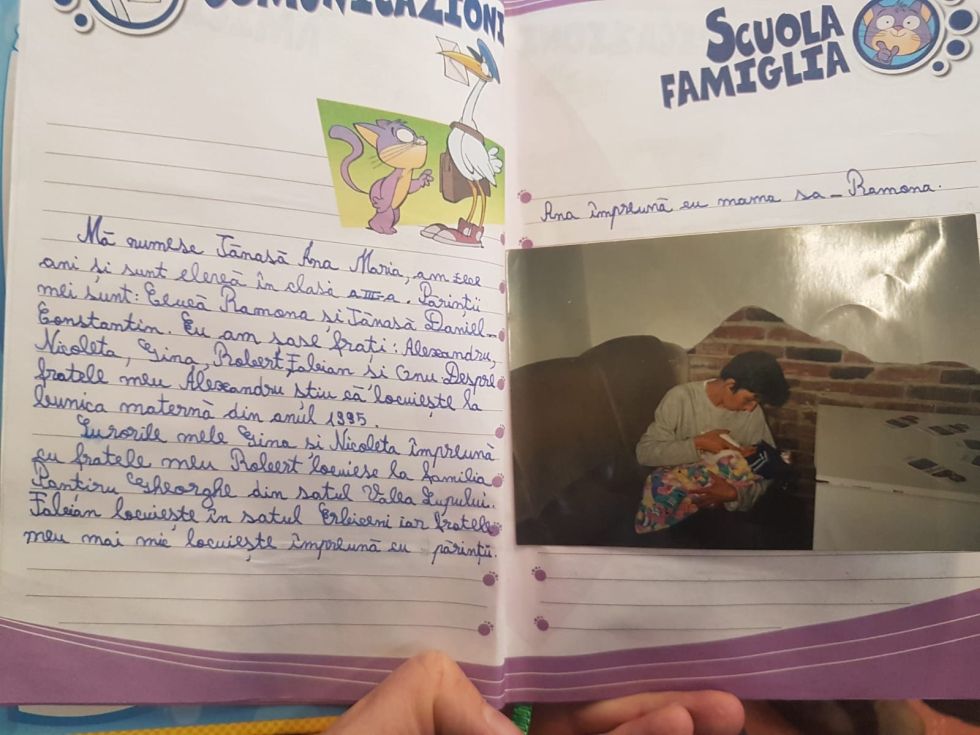 COMUNICAZIONI
Mă numesc Tănasă Ana Maria, am zece
ani și sunt elevă în clasa a III-a. Părinții
mei sunt: Ramona și Tănasă Daniel-
Constantin. Eu am șase frați: Alexandru,
Nicoleta, Gina, Robert, Fabian și Despre
fratele meu Alexandru știu că locuiește la
bunica maternă din anul 1995.
Surorile mele Gina și Nicoleta împreună
cu fratele meu Robert locuiesc la familia
Pantiru Gheorghe din satul Valea Lupului.
Fabian locuiește în satul Erbiceni iar fratele
meu mai mic locuiește împreună cu părinții.
SCUOLA
FAMIGLIA
Ana împreună cu mama sa - Ramona.